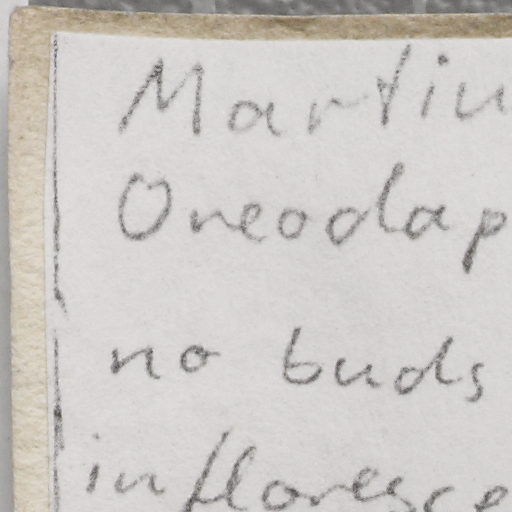 Martiu
Oreodap
no buds
infloresce